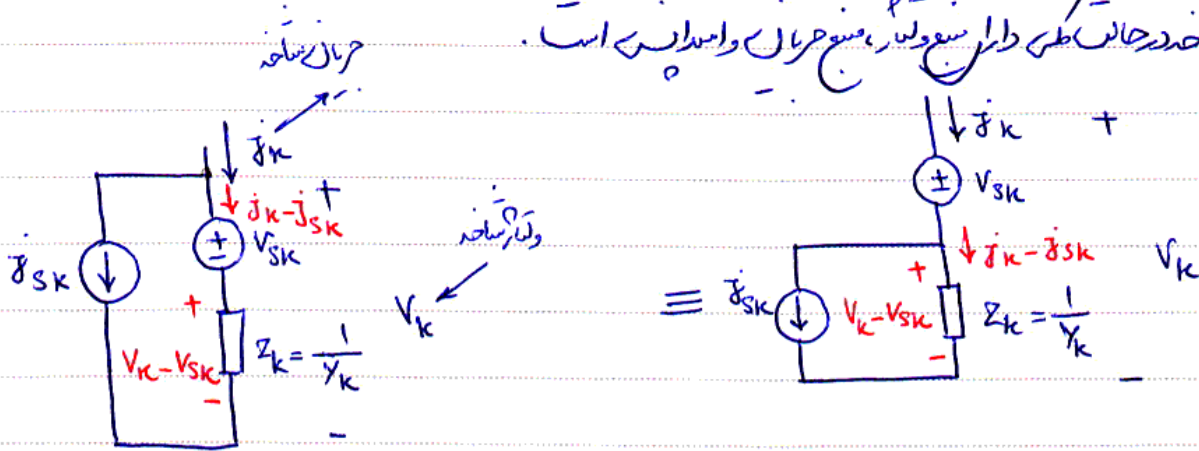 در حالت کلی دارای منبع ولتاژ، منبع جریان و امپدانس است.
جریان شاخه
j_k
j_k - j_sk
+
V_sk
j_sk
ولتاژ شاخه
V_k
+
V_k - V_sk
-
Z_k = 1/Y_k
-
≡
j_k
+
V_sk
j_k - j_sk
V_k
j_sk
+
V_k - V_sk
-
Z_k = 1/Y_k
-